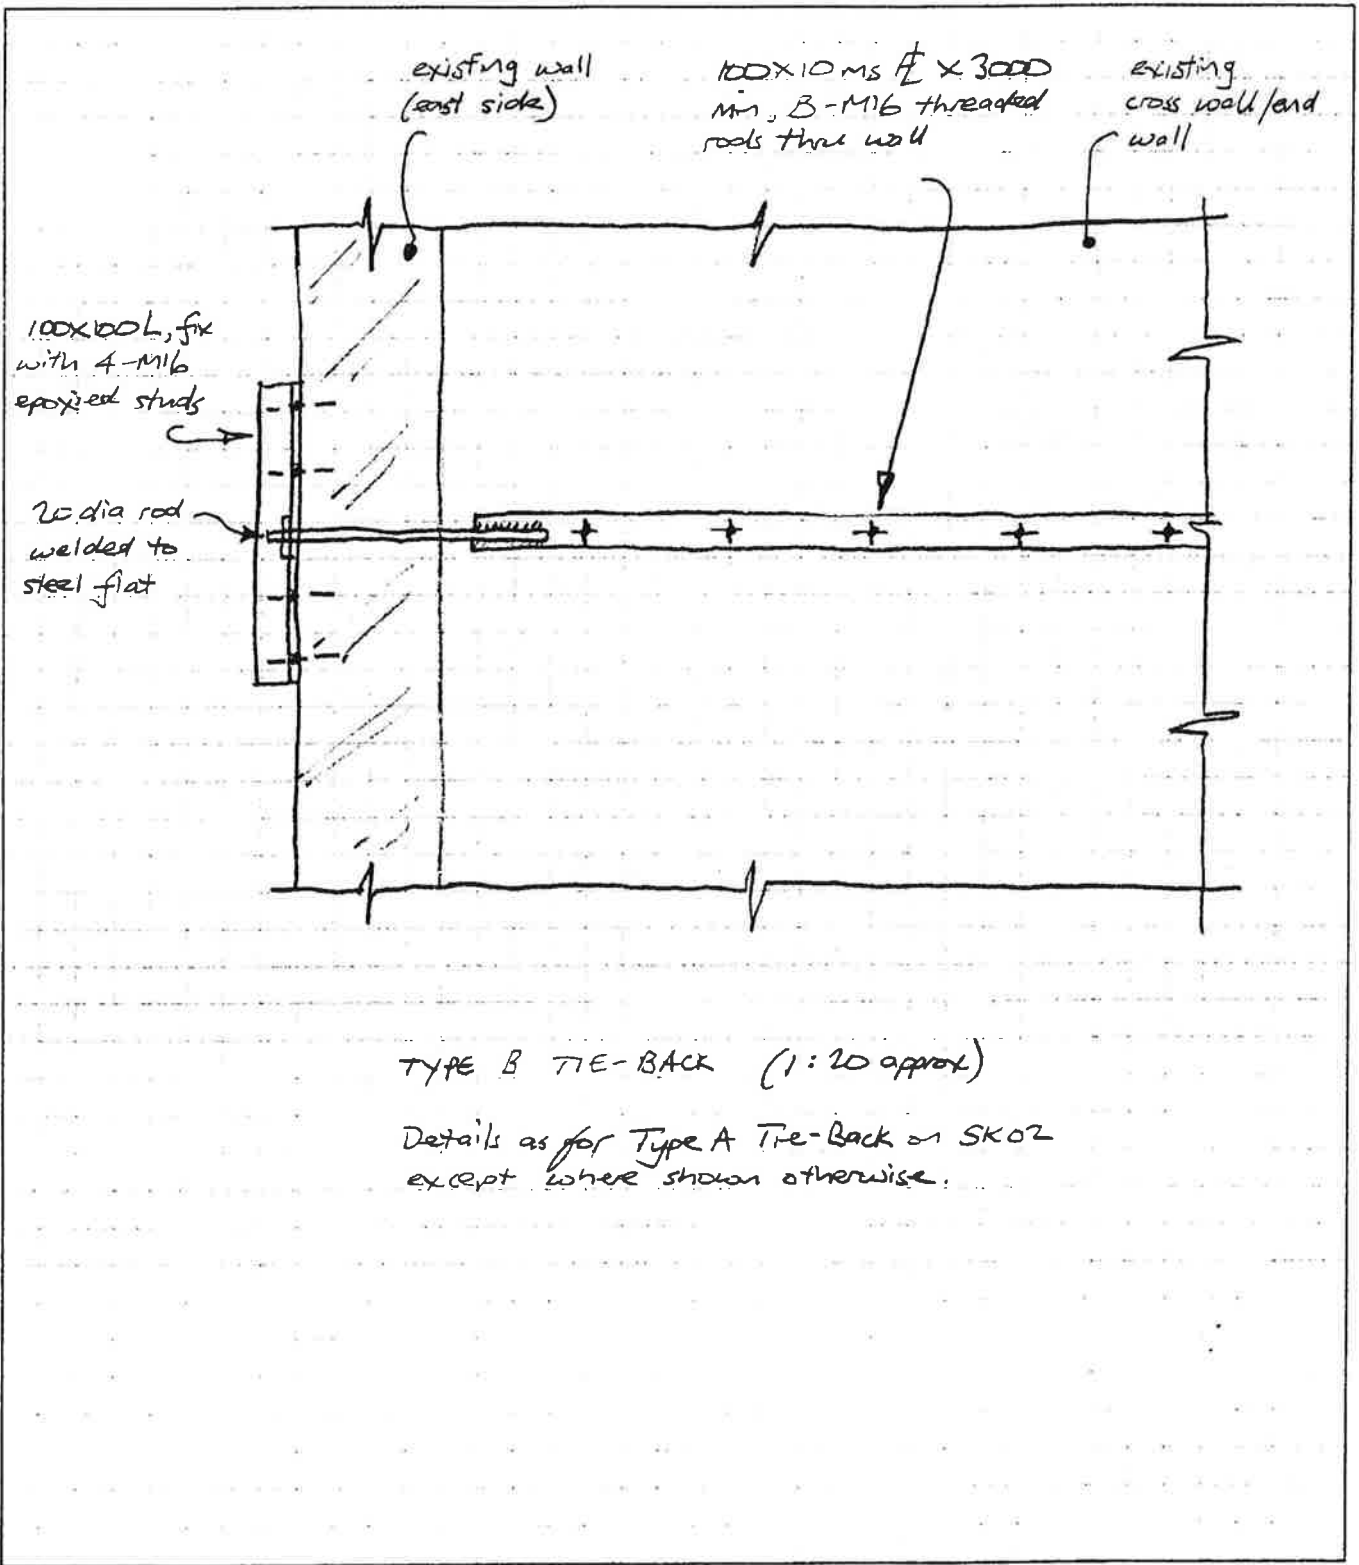 existing wall
(east side)
100X10 ms PL X 3000
min, 8-M16 threaded
rods thru wall
existing
cross wall/end
wall
100X100L, fix
with 4-M16
epoxied studs
20 dia rod
welded to
steel flat
TYPE B TIE-BACK (1:20 approx)
Details as for Type A Tie-Back on SK02
except where shown otherwise.